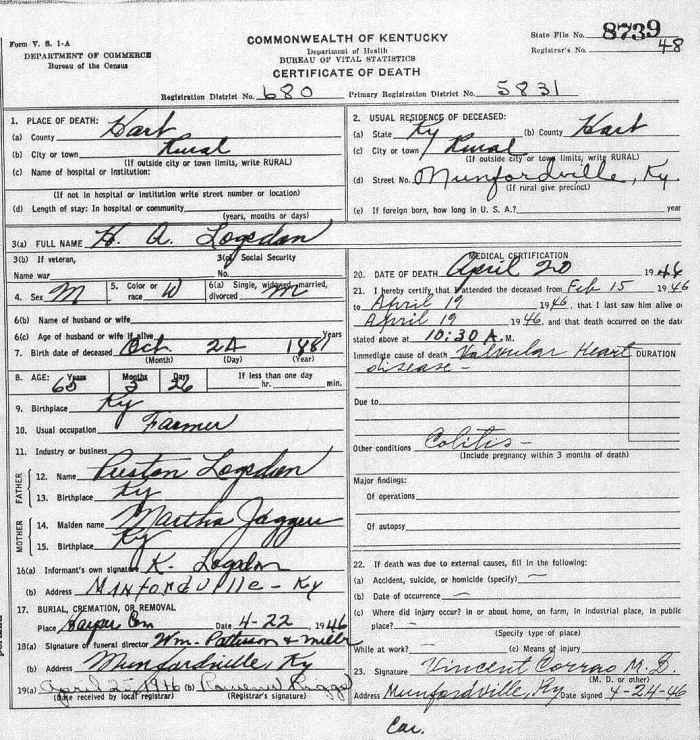 Form V. S. 1-A
DEPARTMENT OF COMMERCE
Bureau of the Census
COMMONWEALTH OF KENTUCKY
Department of Health
BUREAU OF VITAL STATISTICS
CERTIFICATE OF DEATH
State File No. 8739
Registrar's No. 48
Registration District No. 680 Primary Registration District No. 5831
1. PLACE OF DEATH:
(a) County Hart
(b) City or town Rural
(If outside city or town limits, write RURAL)
(c) Name of hospital or institution:
(If not in hospital or institution write street number or location)
(d) Length of stay: In hospital or community
(years, months or days)
2. USUAL RESIDENCE OF DECEASED:
(a) State Ky (b) County Hart
(c) City or town Rural
(If outside city or town limits, write RURAL)
(d) Street No. Munfordville, Ky.
(If rural give precinct)
(e) If foreign born, how long in U. S. A.? year
3(a) FULL NAME H. A. Logsdon
3(b) If veteran, 3(c) Social Security
Name war No.
4. Sex M 5. Color or race W 6(a) Single, widowed, married, divorced M
6(b) Name of husband or wife
6(c) Age of husband or wife if alive Years
7. Birth date of deceased Oct 24 1881
(Month) (Day) (Year)
8. AGE: Years Months Days If less than one day
26 hr. min.
9. Birthplace Ky
10. Usual occupation Farmer
11. Industry or business
FATHER
12. Name Preston Logsdon
13. Birthplace Ky
MOTHER
14. Maiden name Martha Jaggers
15. Birthplace Ky
16(a) Informant's own signature K. Logsdon
(b) Address Munfordville - Ky
17. BURIAL, CREMATION, OR REMOVAL
Place Cem Date 4-22 1946
18(a) Signature of funeral director Wm. &
(b) Address Munfordville, Ky
19(a) April 25, 1946 (b)
(Date received by local registrar) (Registrar's signature)
MEDICAL CERTIFICATION
20. DATE OF DEATH April 20 1946
21. I hereby certify that I attended the deceased from Feb 15 1946
to April 19 1946, that I last saw him alive on
April 19 1946, and that death occurred on the date
stated above at 10:30 A. M.
Immediate cause of death Valvular Heart DURATION
disease
Due to
Other conditions Colitis -
(Include pregnancy within 3 months of death)
Major findings:
Of operations
Of autopsy
22. If death was due to external causes, fill in the following:
(a) Accident, suicide, or homicide (specify) —
(b) Date of occurrence —
(c) Where did injury occur? in or about home, on farm, in industrial place, in public
place? —
(Specify type of place)
While at work? — (e) Means of injury
23. Signature Vincent Corrao M. D.
(M. D. or other)
Address Munfordville, Ky Date signed 4-24-46
Car.